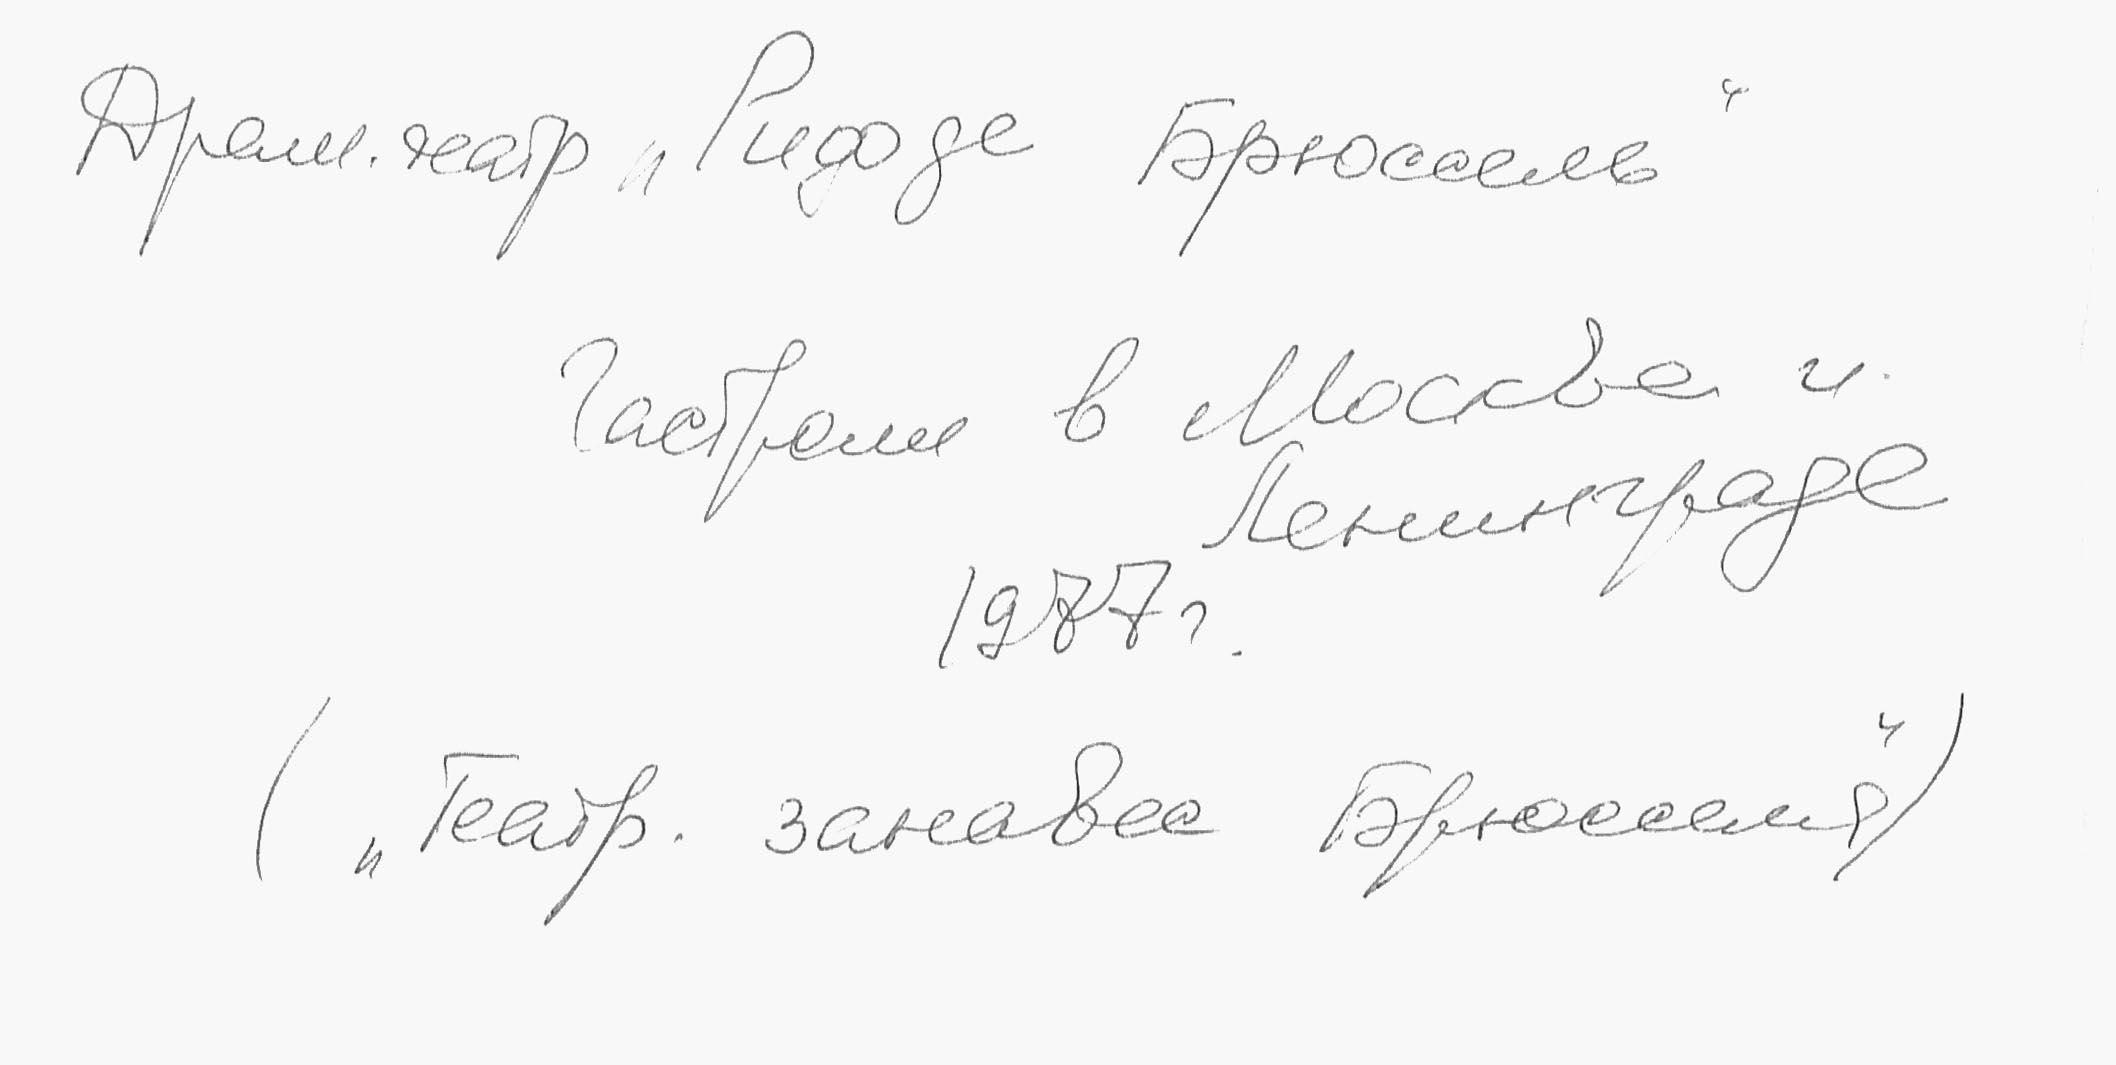 Драм. театр „Ридо де Брюссель“
Гастроли в Москве и
Ленинграде
1977 г.
(„Театр. занавес Брюсселя“)